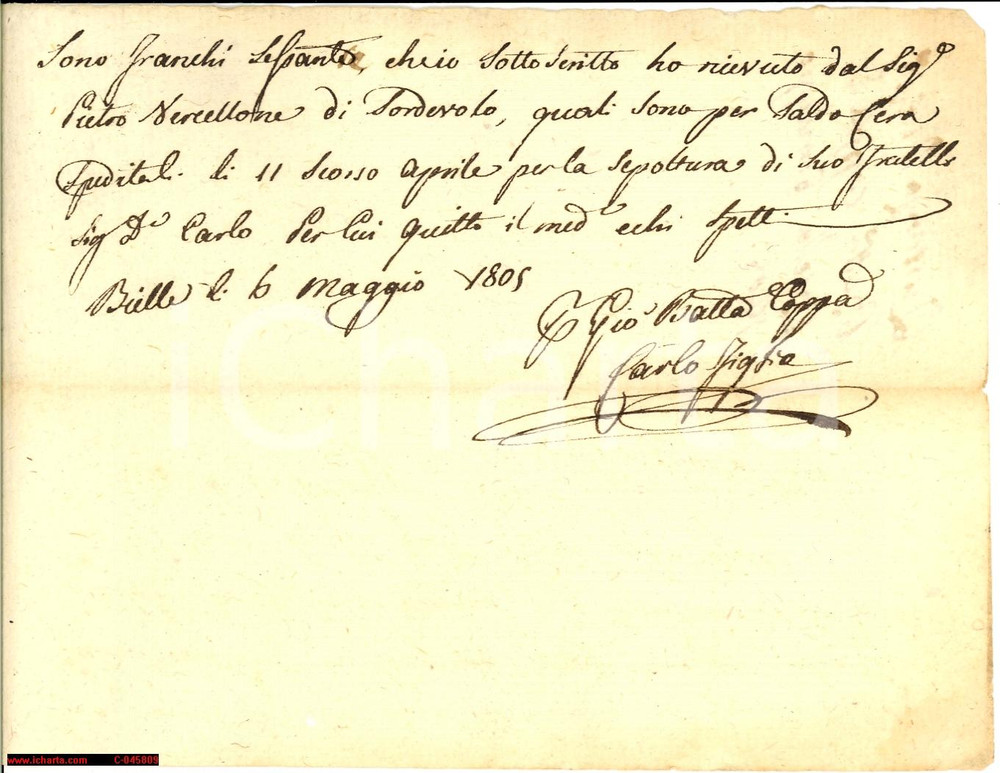 Sono Franchi Sessanta, che io Sotto Scritto ho ricevuto dal Sig.r
Pietro Vercellone di Sordevolo, quali Sono per Saldo Cera
Speditali li 11 Scorso Aprile per la Sepoltura di Suo Fratello
Sig.r D.e Carlo Per lui quitto il med.o echi Spett.
Bielle li 6 Maggio 1805
Gio Batta Coppa
Carlo Figlio
iCharta
www.icharta.com C-045809